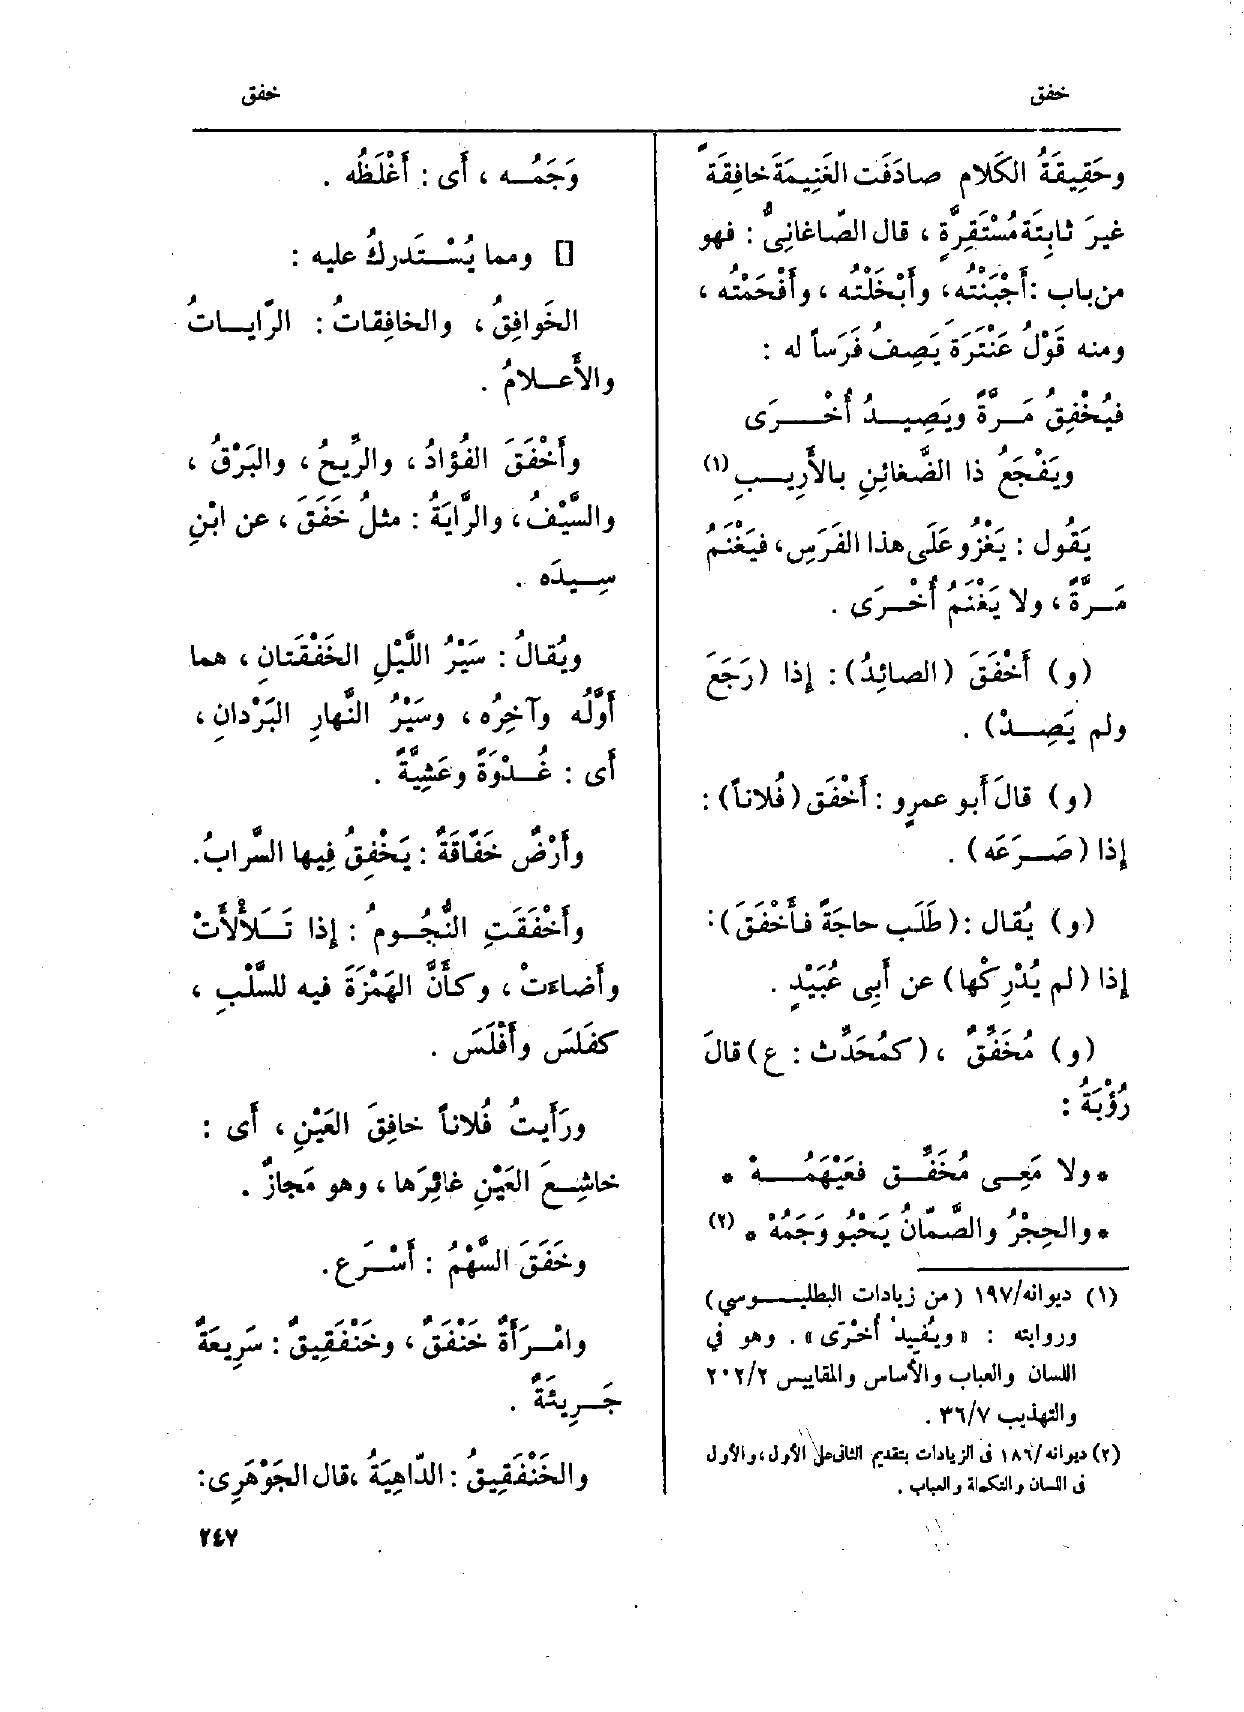 خفق
خفق
وحَقِيقَةُ الكَلام صادَفَت الغَنِيمَةَ خافِقَةً
غيرَ ثابِتَة مُسْتَقِرَّةٍ ، قال الصّاغانِىُّ : فهو
من باب : أَجْبَنْتُه، وأَبْخَلْتُه ، وأَفْحَمْتُه ،
ومنه قَوْلُ عَنْتَرَةَ يَصِفُ فَرَساً له :
فيُخْفِقُ مَــرَّةً ويَصِيــدُ أُخْــرَى
ويَفْجَعُ ذا الضَّغائنِ بالأَرِيــبِ (١)
يَقُول : يَغْزُو عَلَى هذا الفَرَس، فيَغْنَمُ
مَــرَّةً ، ولا يَغْنَمُ أُخْــرَى .
(و) أَخْفَقَ (الصائِدُ) : إِذا (رَجَعَ
ولم يَصِــدْ) .
(و) قالَ أَبو عمرٍو : أَخْفَق (فُلاناً) :
إِذا (صَــرَعَه) .
(و) يُقال : (طَلَب حاجَةً فأَخْفَقَ) :
إِذا (لم يُدْرِكْها) عن أَبِى عُبَيْدٍ .
(و) مُخَفِّقٌ ، (كمُحَدِّث : ع) قالَ
رُؤْبَةُ :
* ولا مَعِــى مُخَفَّــق فعَيْهَمُــهْ *
* والحِجْرُ والصَّمّانُ يَحْبُو وَجَمُهْ * (٢)
(١) ديوانه/١٩٧ (من زيادات البطليــوسي)
وروايته : «ويُفِيدُ أُخْرَى» . وهو في
اللسان والعباب والأساس والمقاييس ٢٠٢/٢
والتهذيب ٣٦/٧ .
(٢) ديوانه/١٨٦ فى الزيادات بتقديم الثانى على الأول، والأول
فى اللسان والتكملة والعباب .
وَجَمُــه ، أَى : أَغْلَظُه .
[] ومما يُسْــتَدركُ عليه :
الخَوافِقُ ، والخافِقاتُ : الرَّايــاتُ
والأَعــلامُ .
وأَخْفَقَ الفُؤادُ ، والرِّيحُ ، والبَرْقُ ،
والسَّيْفُ، والرَّايَةُ : مثلُ خَفَقَ ، عن ابْنِ
سِــيدَه .
ويُقالُ : سَيْرُ اللَّيْلِ الخَفْقَتانِ ، هما
أَوَّلُه وآخِرُه ، وسَيْرُ النَّهارِ البَرْدانِ ،
أَى : غُــدْوَةً وعَشِيَّةً .
وأَرْضٌ خَفّاقَةٌ : يَخْفِقُ فِيها السَّرابُ.
وأَخْفَقَتِ النُّجُــومُ : إِذا تَــلأْلأَتْ
وأَضاءَتْ ، وكأَنَّ الهَمْزَةَ فيه للسَّلْبِ ،
كفَلَسَ وأَفْلَسَ .
ورَأَيتُ فُلاناً خافِقَ العَيْنِ ، أَى :
خاشِــعَ العَيْنِ غائِرَها ، وهو مَجازٌ .
وخَفَقَ السَّهْمُ : أَسْــرَع.
وامْــرَأَةٌ خَنْفَقٌ ، وخَنْفَقِيقٌ : سَرِيعَةٌ
جَــرِيئةٌ .
والخَنْفَقِيقُ : الدّاهِيَةُ ،قال الجَوْهَرِى:
٢٤٧